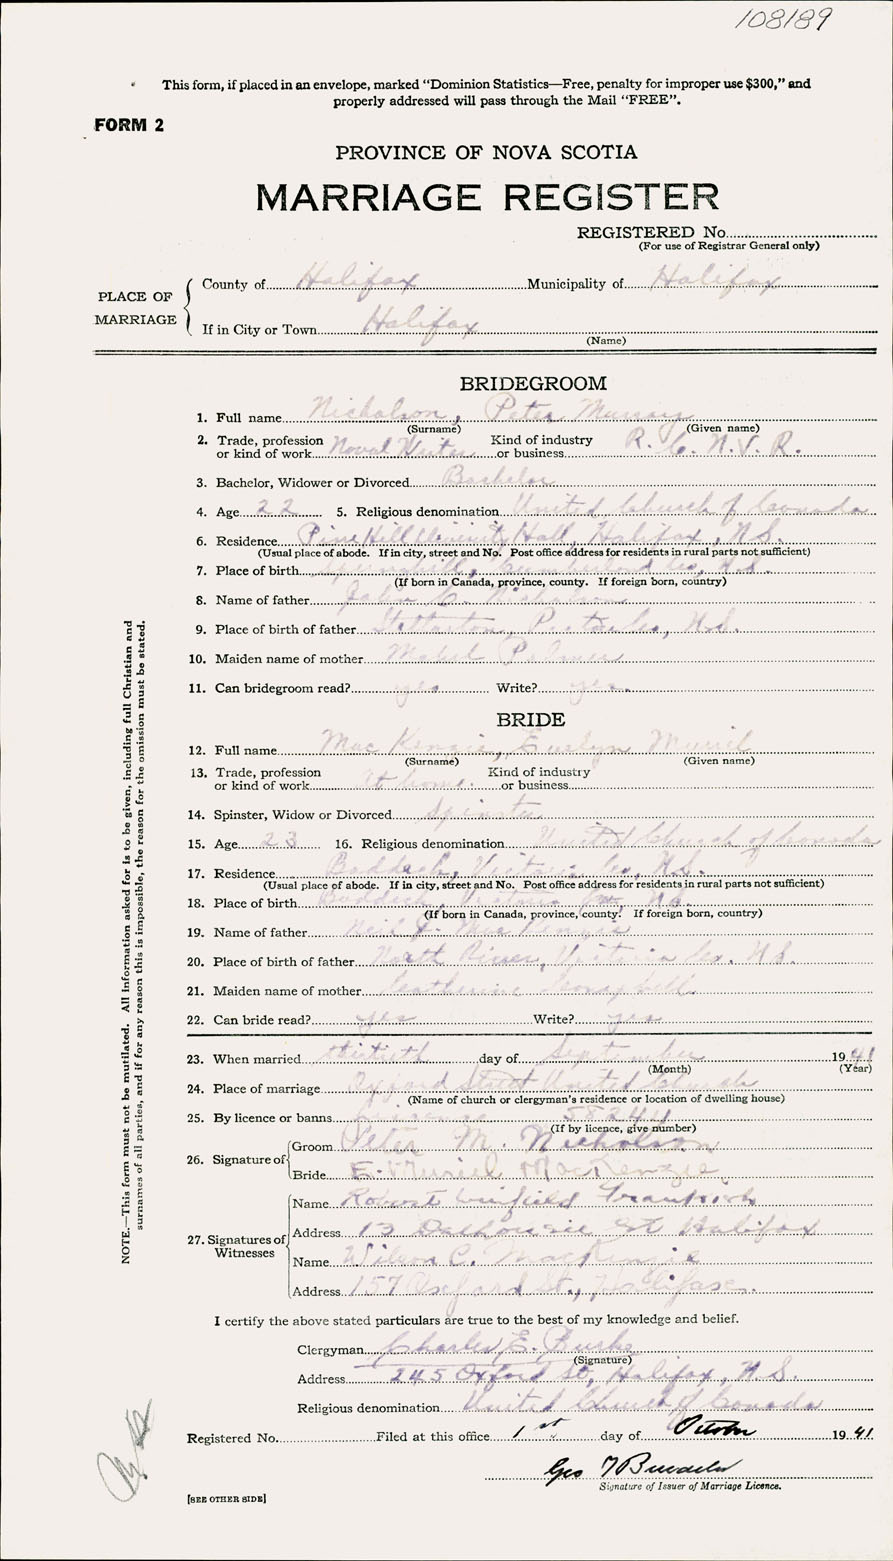 108189
This form, if placed in an envelope, marked “Dominion Statistics—Free, penalty for improper use $300,” and
properly addressed will pass through the Mail “FREE”.
FORM 2
PROVINCE OF NOVA SCOTIA
MARRIAGE REGISTER
REGISTERED No.
(For use of Registrar General only)
PLACE OF MARRIAGE
County of Halifax Municipality of Halifax
If in City or Town Halifax
(Name)
BRIDEGROOM
1. Full name Nicholson, Peter Murray
(Surname) (Given name)
2. Trade, profession Kind of industry
or kind of work Naval Writer or business R. C. N. V. R.
3. Bachelor, Widower or Divorced Bachelor
4. Age 22 5. Religious denomination United Church of Canada
6. Residence Pine Hill Divinity Hall, Halifax, N.S.
(Usual place of abode. If in city, street and No. Post office address for residents in rural parts not sufficient)
7. Place of birth Springhill, Cumberland Co., N.S.
(If born in Canada, province, county. If foreign born, country)
8. Name of father John C. Nicholson
9. Place of birth of father Stellarton, Pictou Co., N.S.
10. Maiden name of mother Mabel Palmer
11. Can bridegroom read? yes Write? yes.
BRIDE
12. Full name Mac Kenzie, Euslyn Muriel
(Surname) (Given name)
13. Trade, profession Kind of industry
or kind of work At home. or business
14. Spinster, Widow or Divorced Spinster
15. Age 23 16. Religious denomination United Church of Canada
17. Residence Baddeck, Victoria Co., N.S.
(Usual place of abode. If in city, street and No. Post office address for residents in rural parts not sufficient)
18. Place of birth Baddeck, Victoria Co., N.S.
(If born in Canada, province, county. If foreign born, country)
19. Name of father Neil J. Mac Kenzie
20. Place of birth of father North River, Victoria Co. N.S.
21. Maiden name of mother Catherine Campbell
22. Can bride read? yes Write? yes
23. When married thirtieth day of September 1941
(Month) (Year)
24. Place of marriage Oxford Street United Church
(Name of church or clergyman's residence or location of dwelling house)
25. By licence or banns Licence 58244
(If by licence, give number)
26. Signature of
Groom Peter M. Nicholson
Bride E. Muriel MacKenzie
27. Signatures of Witnesses
Name Robert Winfield
Address 13 Dalhousie St Halifax
Name Wilson C. MacKenzie
Address 157 Oxford St., Halifax.
I certify the above stated particulars are true to the best of my knowledge and belief.
Clergyman Charles E.
(Signature)
Address 245 Oxford St., Halifax, N.S.
Religious denomination United Church of Canada
Registered No. Filed at this office 1st day of October 1941
Geo
Signature of Issuer of Marriage Licence.
[SEE OTHER SIDE]
NOTE.—This form must not be mutilated. All information asked for is to be given, including full Christian and
surnames of all parties, and if for any reason this is impossible, the reason for the omission must be stated.